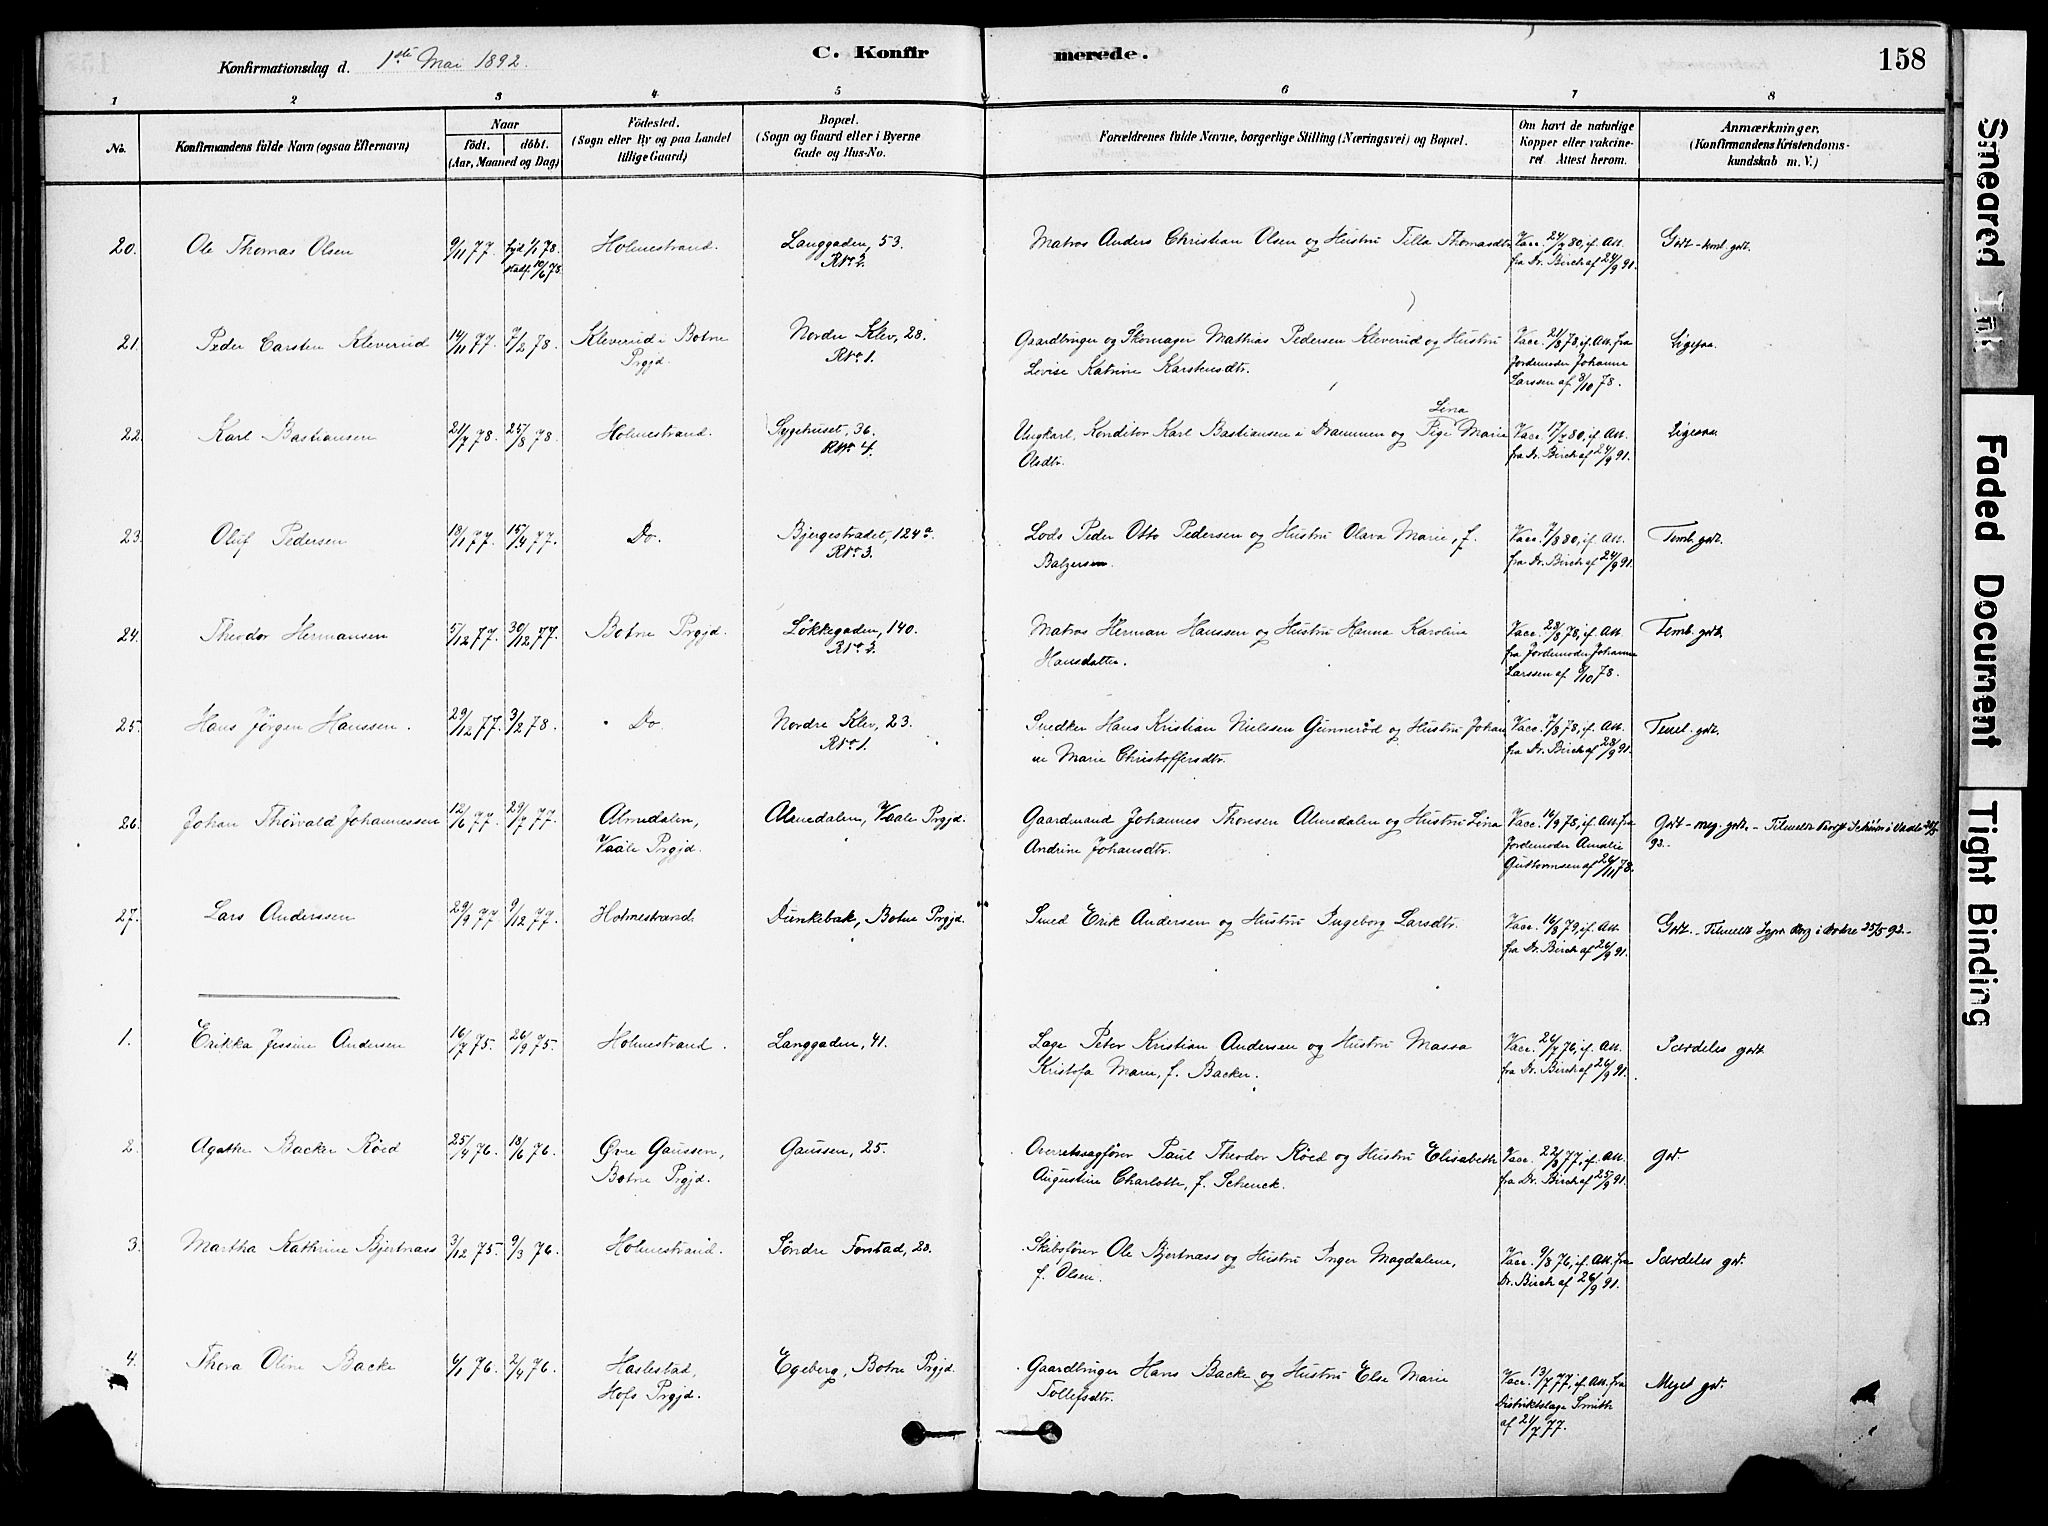 Konfirmationsdag d. 1ste Mai 1892.
C. Konfirmerede.
158
1 2 3 4 5 6 7 8
No.
Konfirmandens fulde Navn (ogsaa Efternavn)
Naar
födt. döbt.
(Aar, Maaned og Dag)
Födested.
(Sogn eller By og paa Landet
tillige Gaard)
Bopæl.
(Sogn og Gaard eller i Byerne
Gade og Hus-No.
Forældrenes fulde Navne, borgerlige Stilling (Næringsvei) og Bopæl.
Om havt de naturlige
Kopper eller vakcine-
ret Attest herom.
Anmærkninger.
(Konfirmandens Kristendoms-
kundskab m. V.)
20. Ole Thomas Olsen 9/11 77. 78. Holmestrand. Langgaden, 53. Matros Anders Christian Olsen og Hustru Tilla Thomasdtr Vacc. 24/7 80, if. Att.
stadf. 10/6 78. fra Dr. Birch af 24/9 91.
21. Peder Carsten Kleverud 14/11 77. 7/2 78. Kleverud i Botne Nordre Klev, 28. Gaardbruger og Skomager Mathias Pedersen Kleverud og Hustru Vacc. 21/8 78, if. Att. fra Ligesaa.
Prgjd. Lovise Katrine Karstensdtr. Jordemoder Johanne
Larssen af 3/10 78.
22. Karl Bastiansen 21/7 78. 25/8 78. Holmestrand. Sygehuset, 36. Ungkarl, Konditor Karl Bastiansen i Drammen og Pige Lina Marie Vacc. 17/7 80, if. Att. Ligesaa
Olsdtr. fra Dr. Birch af 24/9 91.
23. Oluf Pedersen 13/1 77. 15/4 77. Do. Bjergestrædet, 124a Lods Peder Otto Pedersen og Hustru Olava Marie, f. Vacc. 7/8 80, if. Att. Teml. godt.
Balzersen. fra Dr. Birch af 24/9 91.
24. Theodor Hermansen 5/12 77. 30/12 77. Botne Prgjd. Løkkegaden, 140. Matros Herman Hanssen og Hustru Hanna Karoline Vacc. 23/8 78, if. Att. Teml. godt.
Hansdatter. fra Jordemoder Johanne
Larssen af 78.
25. Hans Jørgen Hanssen. 29/12 77. 3/2 78. Do. Nordre Klev, 23. Snedker Hans Kristian Nielssen Gunnerød og Hustru Johan Vacc. 7/8 78, if. Att. Teml. godt.
ne Marie Christoffersdtr. fra Dr. Birch af 28/9 91.
26. Johan Thorvald Johannessen 12/6 77. 29/7 77. Almedalen, Almedalen, Vaale Prgjd. Gaardmand Johannes Thoresen Almedalen og Hustru Lina Vacc. 16/9 78, if. Att. fra Godt - meg. godt.
Vaale Prgjd. Andrine Johansdtr. Jordemoder Amalie 92.
Guttormsen af 26/11 78.
27. Lars Anderssen 29/9 77. 9/12 77. Holmestrand. Dunkebak, Botne Prgjd. Smed Erik Andersen og Hustru Ingeborg Larsdtr. Vacc. 16/8 79, if. Att. Godt. - Tilmeldt i Botne 25/5 92.-
fra Dr. Birch af 26/9 91.
1. Erikka Jessine Andersen 16/7 75. 26/9 75. Holmestrand. Langgaden, 41. Lage Peter Kristian Andersen og Hustru Massa Vacc. 26/7 76, if. Att. Særdeles godt.
Kristofa Marie, f. Backer. fra Dr. Birch af 26/9 91.
2. Agathe Backer Röed 25/4 76. 18/6 76. Øvre Gaussen, Gaussen, 25. Overretssagfører Paul Theodor Röed og Hustru Elisabeth Vacc. 22/8 77, if. Att. God.
Botne Prgjd. Augustine Charlotte, f. Schenck. fra Dr. Birch af 25/9 91.
3. Martha Kathrine Bjertnæss 3/12 75. 9/3 76. Holmestrand. Søndre Forstad, 20. Skibsfører Ole Bjertnæss og Hustru Inger Magdalene, Vacc. 9/8 76, if. Att. fra Særdeles god.
f. Olsen. Dr. Birch af 26/9 91.
4. Thora Oline Backe 4/1 76. 2/4 76. Haslestad, Egeberg, Botne Prgjd. Gaardbruger Hans Backe og Hustru Else Marie Vacc. 13/7 77, if. Att. fra Meget god.
Hofs Prgjd. Tollefsdtr. Distriktslæge Smith
af 21/7 77.
Smeared Ink
Faded Document
Tight Binding